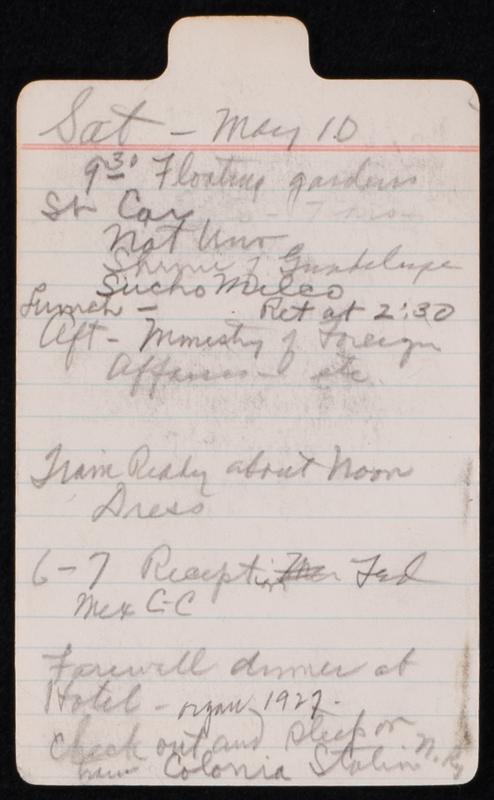 Sat - May 10
9 30 Floating gardens
St Car
Nat Univ
Shrine of Guadelupe
Sucho Milco
Lunch - Ret at 2:30
Aft - Ministry of Foreign
Affairs - etc
Train Ready about Noon
Dress
6-7 Reception Fed
Mex C-C
Farewell dinner at
Hotel - organ. 1927.
Check out and sleep on
train Colonia Station N. Ry